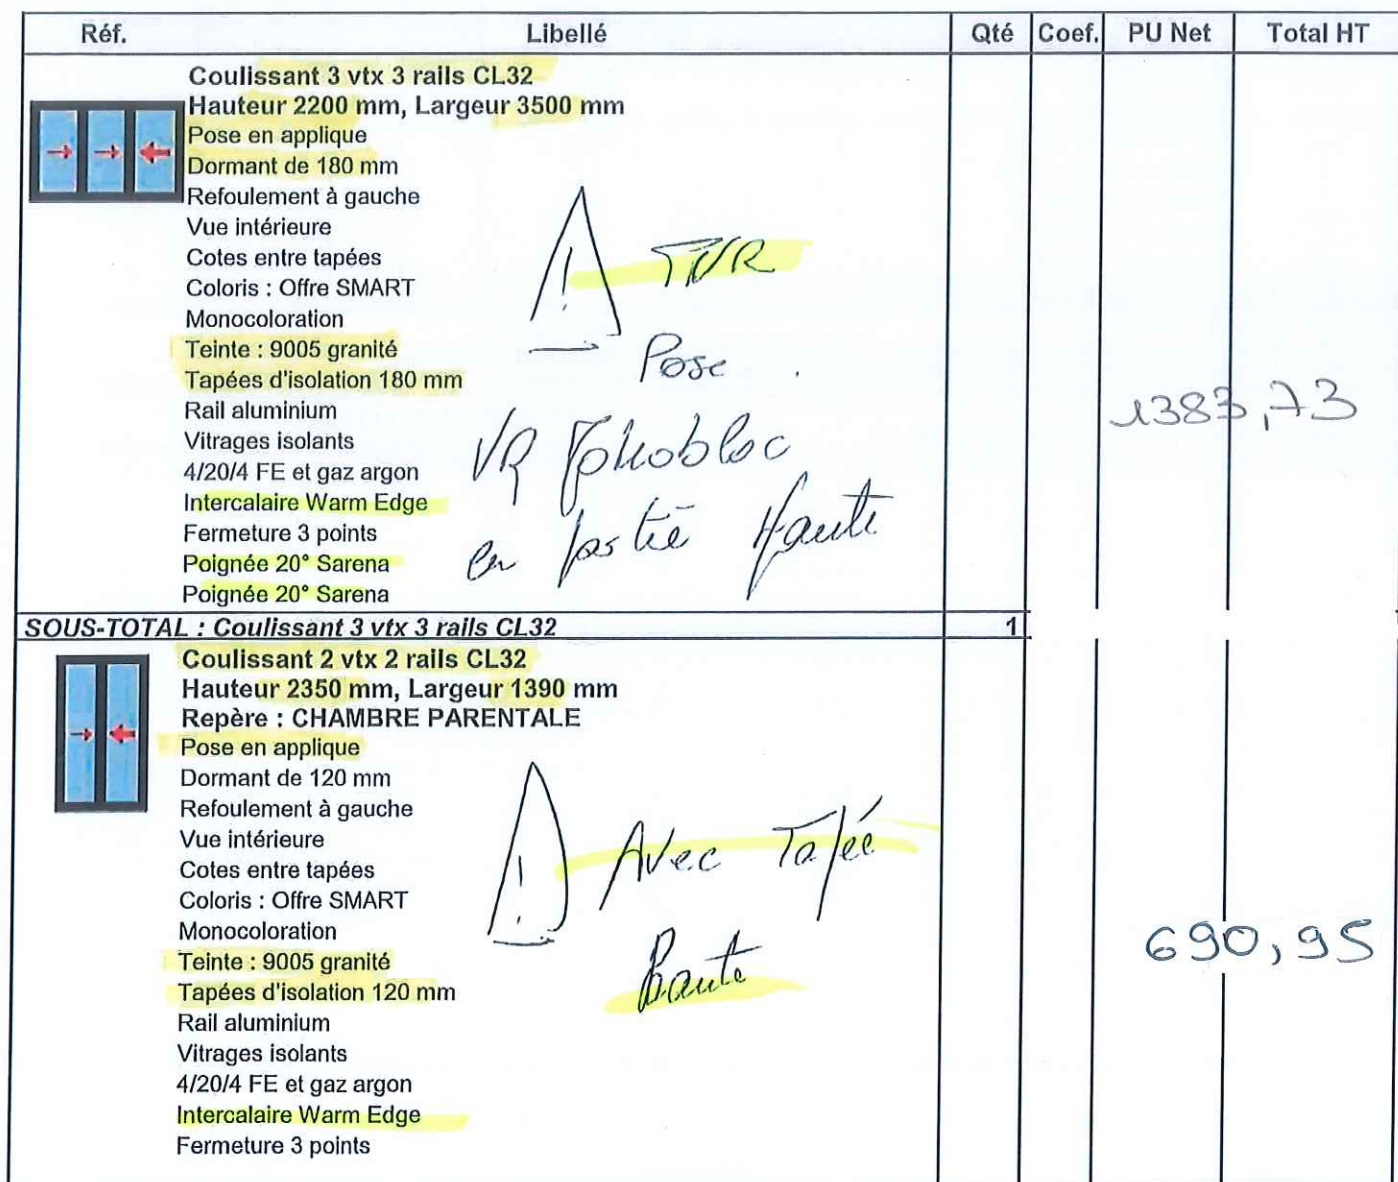 Réf. Libellé Qté Coef. PU Net Total HT
Coulissant 3 vtx 3 rails CL32
Hauteur 2200 mm, Largeur 3500 mm
Pose en applique
Dormant de 180 mm
Refoulement à gauche
Vue intérieure
Cotes entre tapées
Coloris : Offre SMART
Monocoloration
Teinte : 9005 granité
Tapées d'isolation 180 mm
Rail aluminium
Vitrages isolants
4/20/4 FE et gaz argon
Intercalaire Warm Edge
Fermeture 3 points
Poignée 20° Sarena
Poignée 20° Sarena
!
Pose
VR
en partie Haute
1383,73
SOUS-TOTAL : Coulissant 3 vtx 3 rails CL32 1
Coulissant 2 vtx 2 rails CL32
Hauteur 2350 mm, Largeur 1390 mm
Repère : CHAMBRE PARENTALE
Pose en applique
Dormant de 120 mm
Refoulement à gauche
Vue intérieure
Cotes entre tapées
Coloris : Offre SMART
Monocoloration
Teinte : 9005 granité
Tapées d'isolation 120 mm
Rail aluminium
Vitrages isolants
4/20/4 FE et gaz argon
Intercalaire Warm Edge
Fermeture 3 points
! Avec Tapée
Haute
690,95